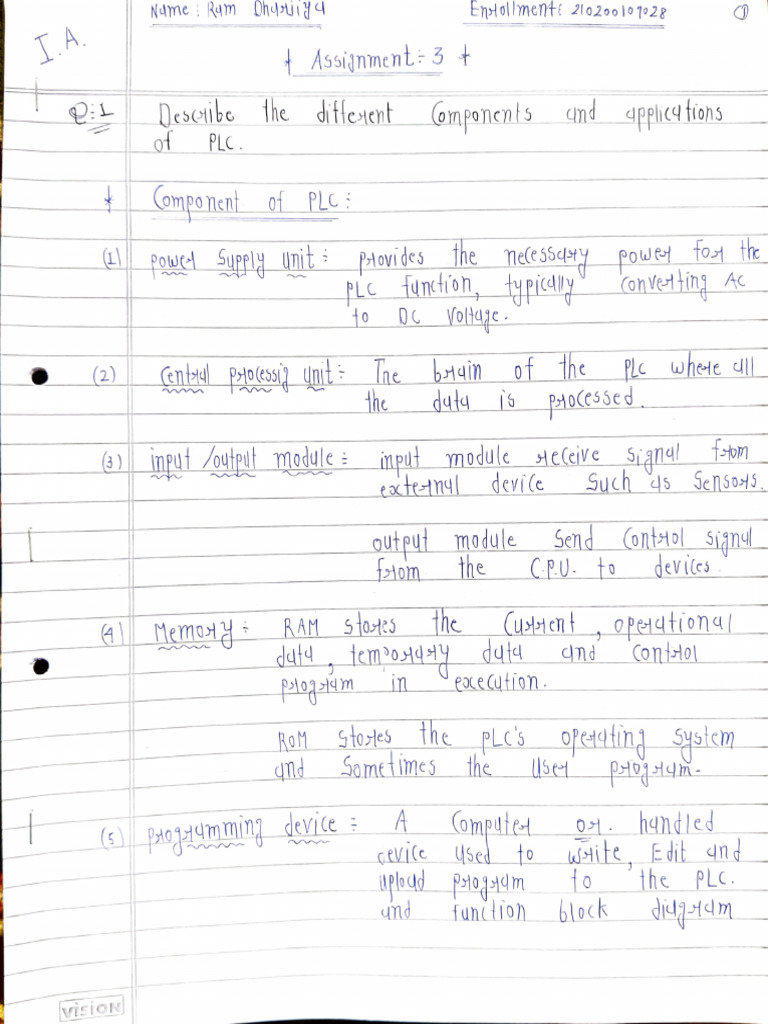 Name : Ram Dharjiya Enrollment: 210200109028 1
I.A.
Assignment:- 3
Q:1 Describe the different Components and applications
of PLC.
* Component of PLC :-
(1) power supply unit :- provides the necessary power for the
PLC function, typically converting AC
to DC voltage.
(2) central processig unit :- The brain of the PLC where all
the data is processed.
(3) input /output module :- input module receive signal from
external device such as sensors.
output module send control signal
from the C.P.U. to devices.
(4) Memory :- RAM stores the current , operational
data , temporary data and control
program in execution.
ROM stores the PLC's operating system
and sometimes the user program.
(5) programming device :- A computer or. handled
cevice used to write, Edit and
upload program to the PLC.
and function block diagram
VISION